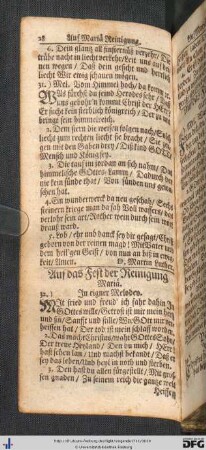 28 Auf Mariä Reinigung.
6. Dein glantz all finsterniß verzehr/ Die
trübe nacht in liecht verkehr/ leit uns auf
nen wegen/ Daß dein gesicht und herrlich
liecht Wir ewig schauen mögen.
31. Mel. Vom Himmel hoch/ da komm ich
WAs fürchst du feind Herodes sehr/ Daß
uns gebohr'n kommt Christ der HErr?
Er sucht kein sterblich königreich/ Der zu uns
bringt sein himmelreich.
2. Dem stern die weisen folgen nach/ Solch
liecht zum rechten liecht sie bracht/ Sie zeigen
mit den gaben drey/ Diß kind GOtt
Mensch und König sey.
3. Die tauf im jordan an sich nahm/ Das
himmelische Gottes-Lamm/ Dadurch der
nie kein sünde that/ Von sünden uns gewa-
schen hat.
4. Ein wunderwerck da neu geschah/
steinern krüge man da sah Voll wassers/ das
verlohr sein art/ Rother wein durch sein wort
draus ward.
5. Lob/ ehr und danck sey dir gesagt/ Christ
gebohrn von der reinen magd/ Mit Vater und
dem heil'gen Geist/ von nun an bis in ewig-
keit/ Amen. D. Martin Luther.
Auf das Fest der Reinigung
Mariä.
32. In eigner Melodey.
MIt fried und freud' ich fahr dahin In
GOttes wille/ Getrost ist mir mein hertz
und sinn/ Sanfft und stille/ Wie GOtt mir ver-
heissen hat/ Der tod ist mein schlaff worden.
2. Das macht Christus/ wahr GOttes Sohn/
Der treue Heyland/ Den du mich/ HErr/
hast sehen lan/ Und machst bekandt/ Daß er
sey das leben/ und heyl in noth und sterben.
3. Den hast du allen fürgestellt/ Mit gros-
sen gnaden/ Zu seinem reich die gantze welt
Heissen